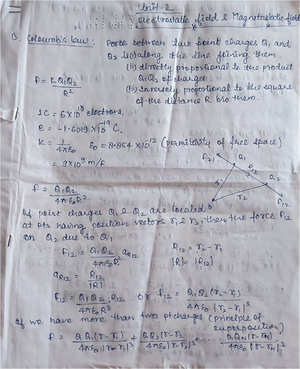 Unit-2
Electrostatic field & Magnetostatic field
Coloumb's law: Force between two point charges Q1 and
Q2 (i) along the line joining them
(ii) directly proportional to the product
F = k Q1Q2 / R² Q1Q2 of charges
(iii) inversely proportional to the square
of the distance R b/w them.
1C = 6×10¹⁸ electrons
e = -1.6019×10⁻¹⁹ C.
K = 1/4πε0 ε0 = 8.854×10⁻¹² (permitivity of free space)
= 9×10⁹ m/F
F = Q1Q2 / 4πε0R²
If point charges Q1 & Q2 are located
at pts having position vectors r1 & r2, then the force F12
on Q2 due to Q1
F12 = Q1Q2 / 4πε0R² aR12 R12 = r2 - r1
|R| = |R12|
aR12 = R12 / |R12|
F12 = Q1Q2 / 4πε0R³ R12 or F12 = Q1Q2 (r2-r1) / 4πε0 |r2-r1|³
If we have more than two pt charges (principle of
superposition)
F = QQ1(r-r1) / 4πε0 |r-r1|³ + QQ2(r-r2) / 4πε0 |r-r2|³ ... QQN(r-rN) / 4πε0 |r-rN|³